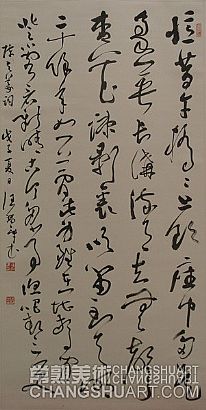 憶昔午橋〻上飲座中多是
豪英長溝流月去無聲
杏花疎影裏吹笛到天明
二十餘年如一夢此身雖在堪驚閒
登小閣看新晴古今多少事漁唱起三更
陳與義詞 戊子夏日汪
常熟美術 CHANGSHUART
CHANGSHUART.COM